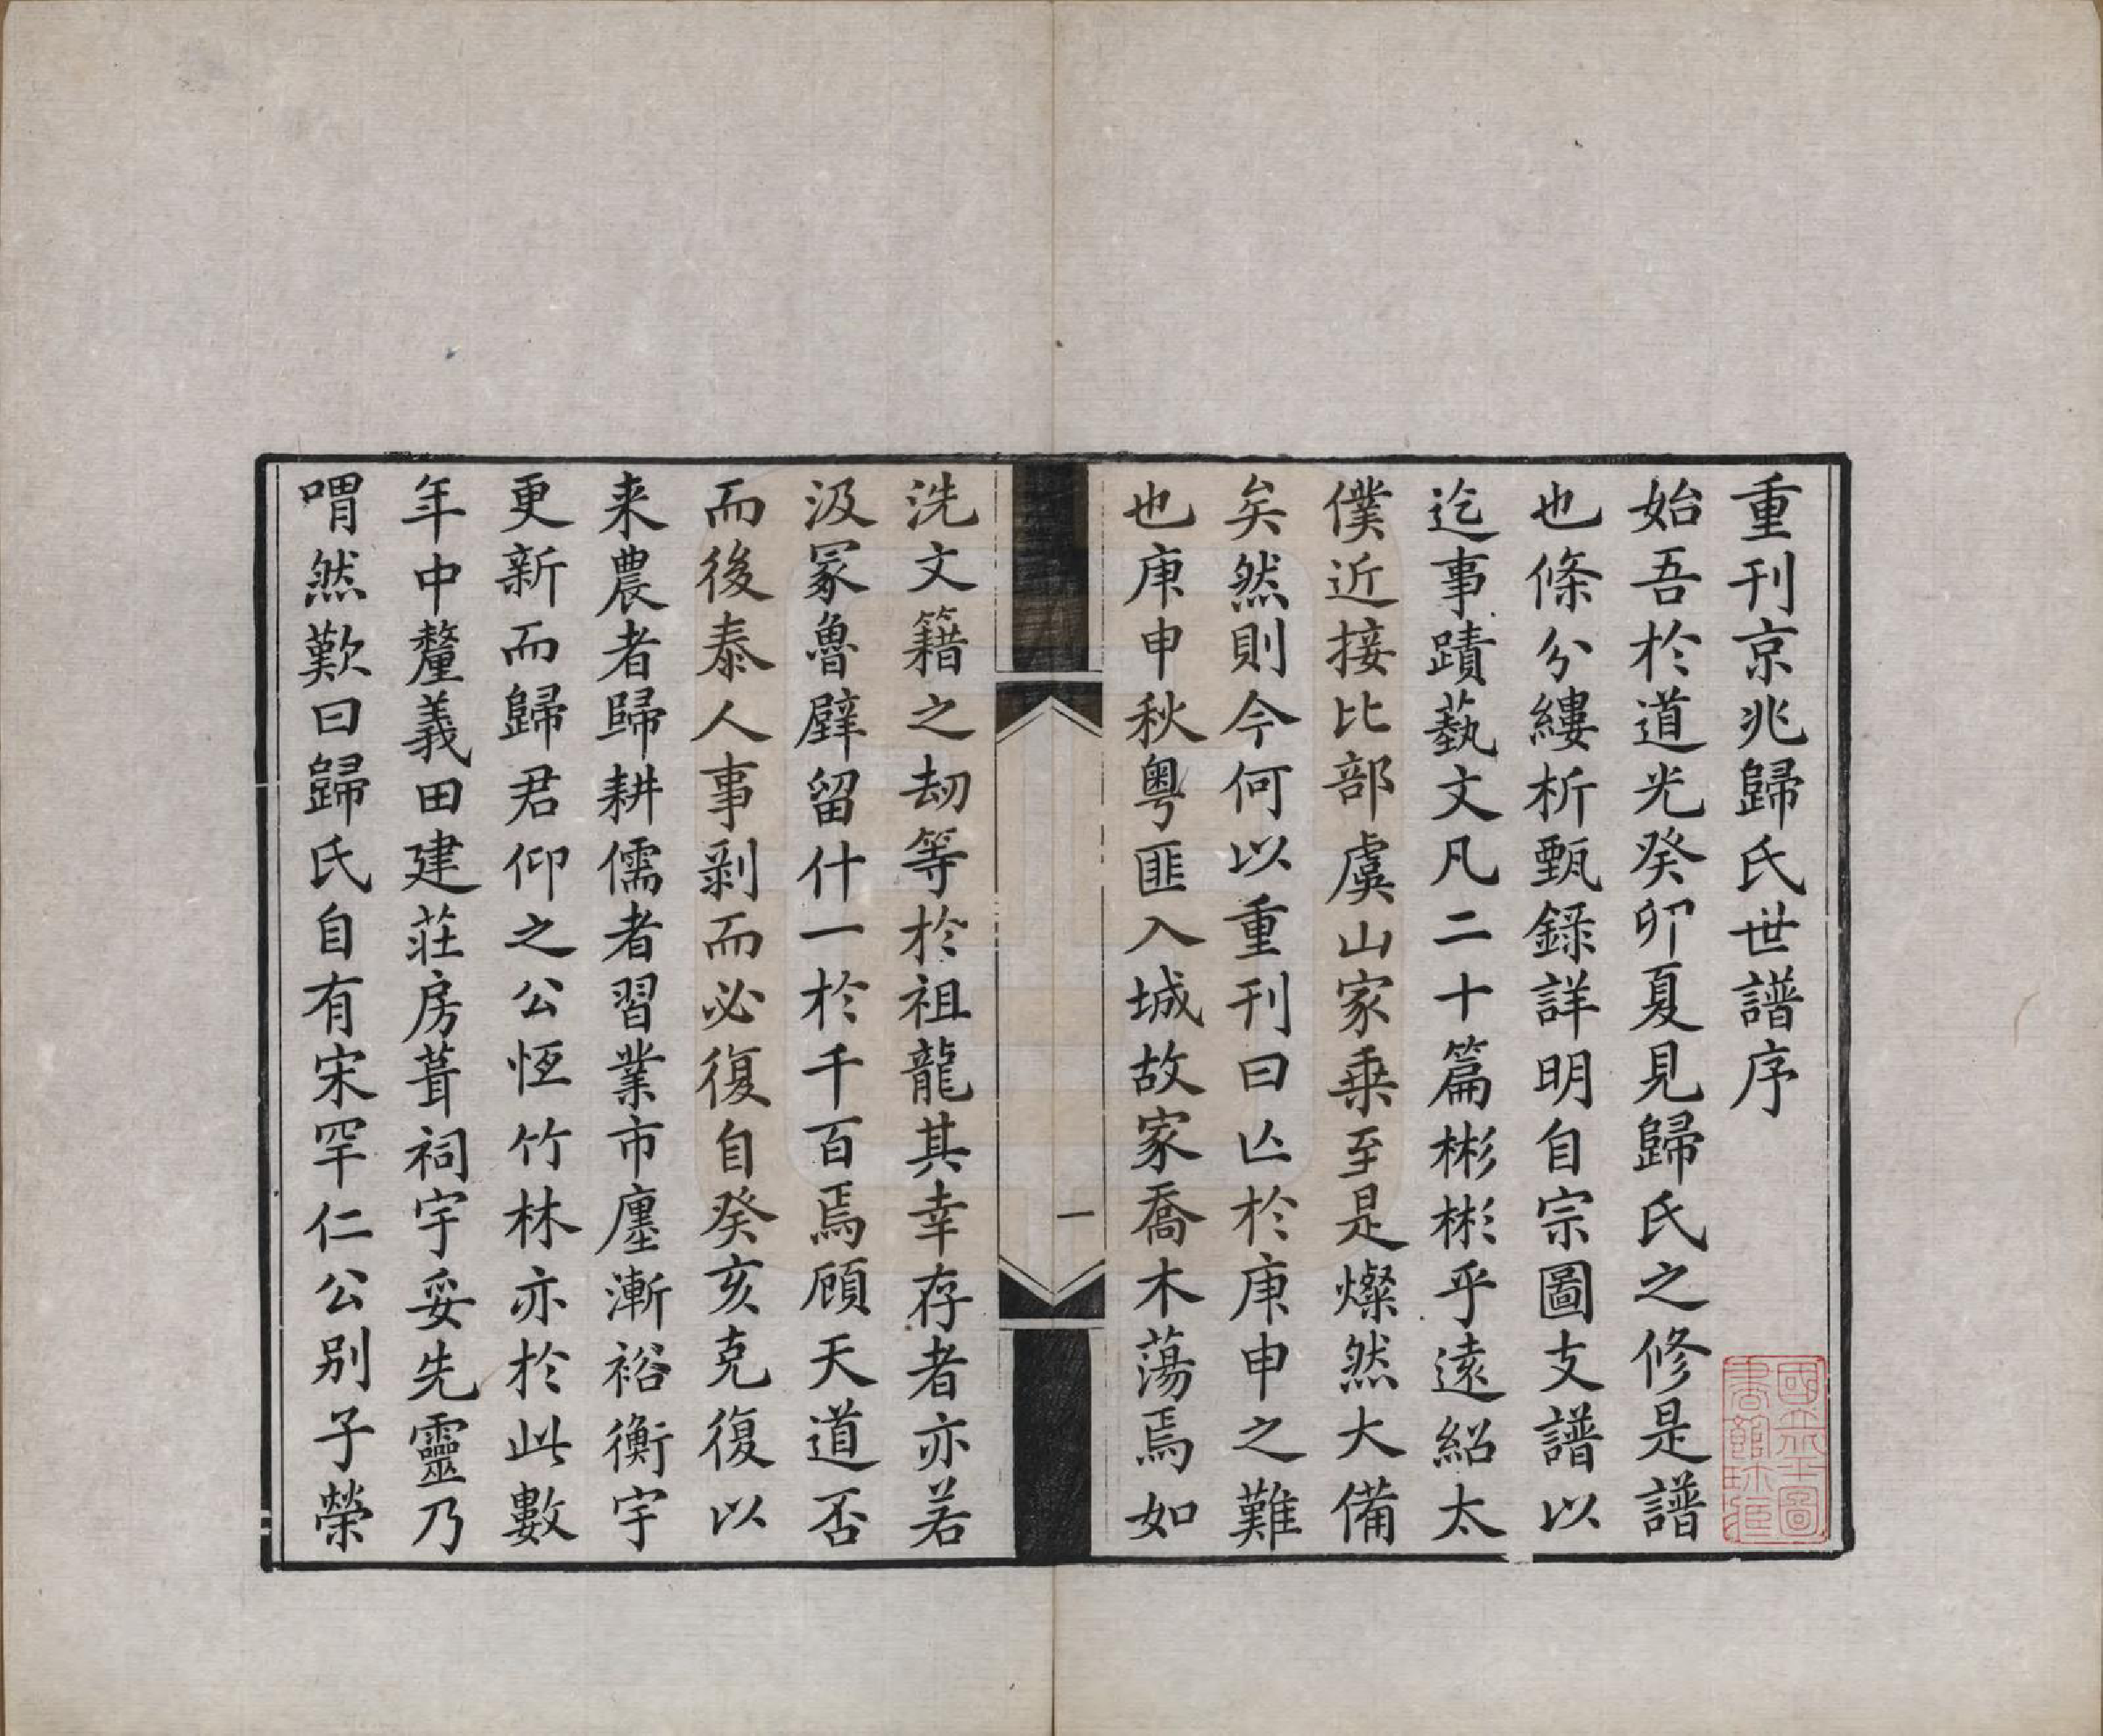 重刊京兆歸氏世譜序
始吾於道光癸卯夏見歸氏之修是譜
也條分縷析甄錄詳明自宗圖支譜以
迄事蹟藝文凡二十篇彬彬乎遠紹太
僕近接比部虞山家乘至是燦然大備
矣然則今何以重刊曰亾於庚申之難
也庚申秋粵匪入城故家喬木蕩焉如
一
洗文籍之劫等於祖龍其幸存者亦若
汲冢魯壁留什一於千百焉顧天道否
而後泰人事剝而必復自癸亥克復以
来農者歸耕儒者習業市廛漸裕衡宇
更新而歸君仰之公恆竹林亦於此數
年中釐義田建莊房葺祠宇妥先靈乃
喟然歎曰歸氏自有宋罕仁公別子榮
國立中央圖
書館珍藏